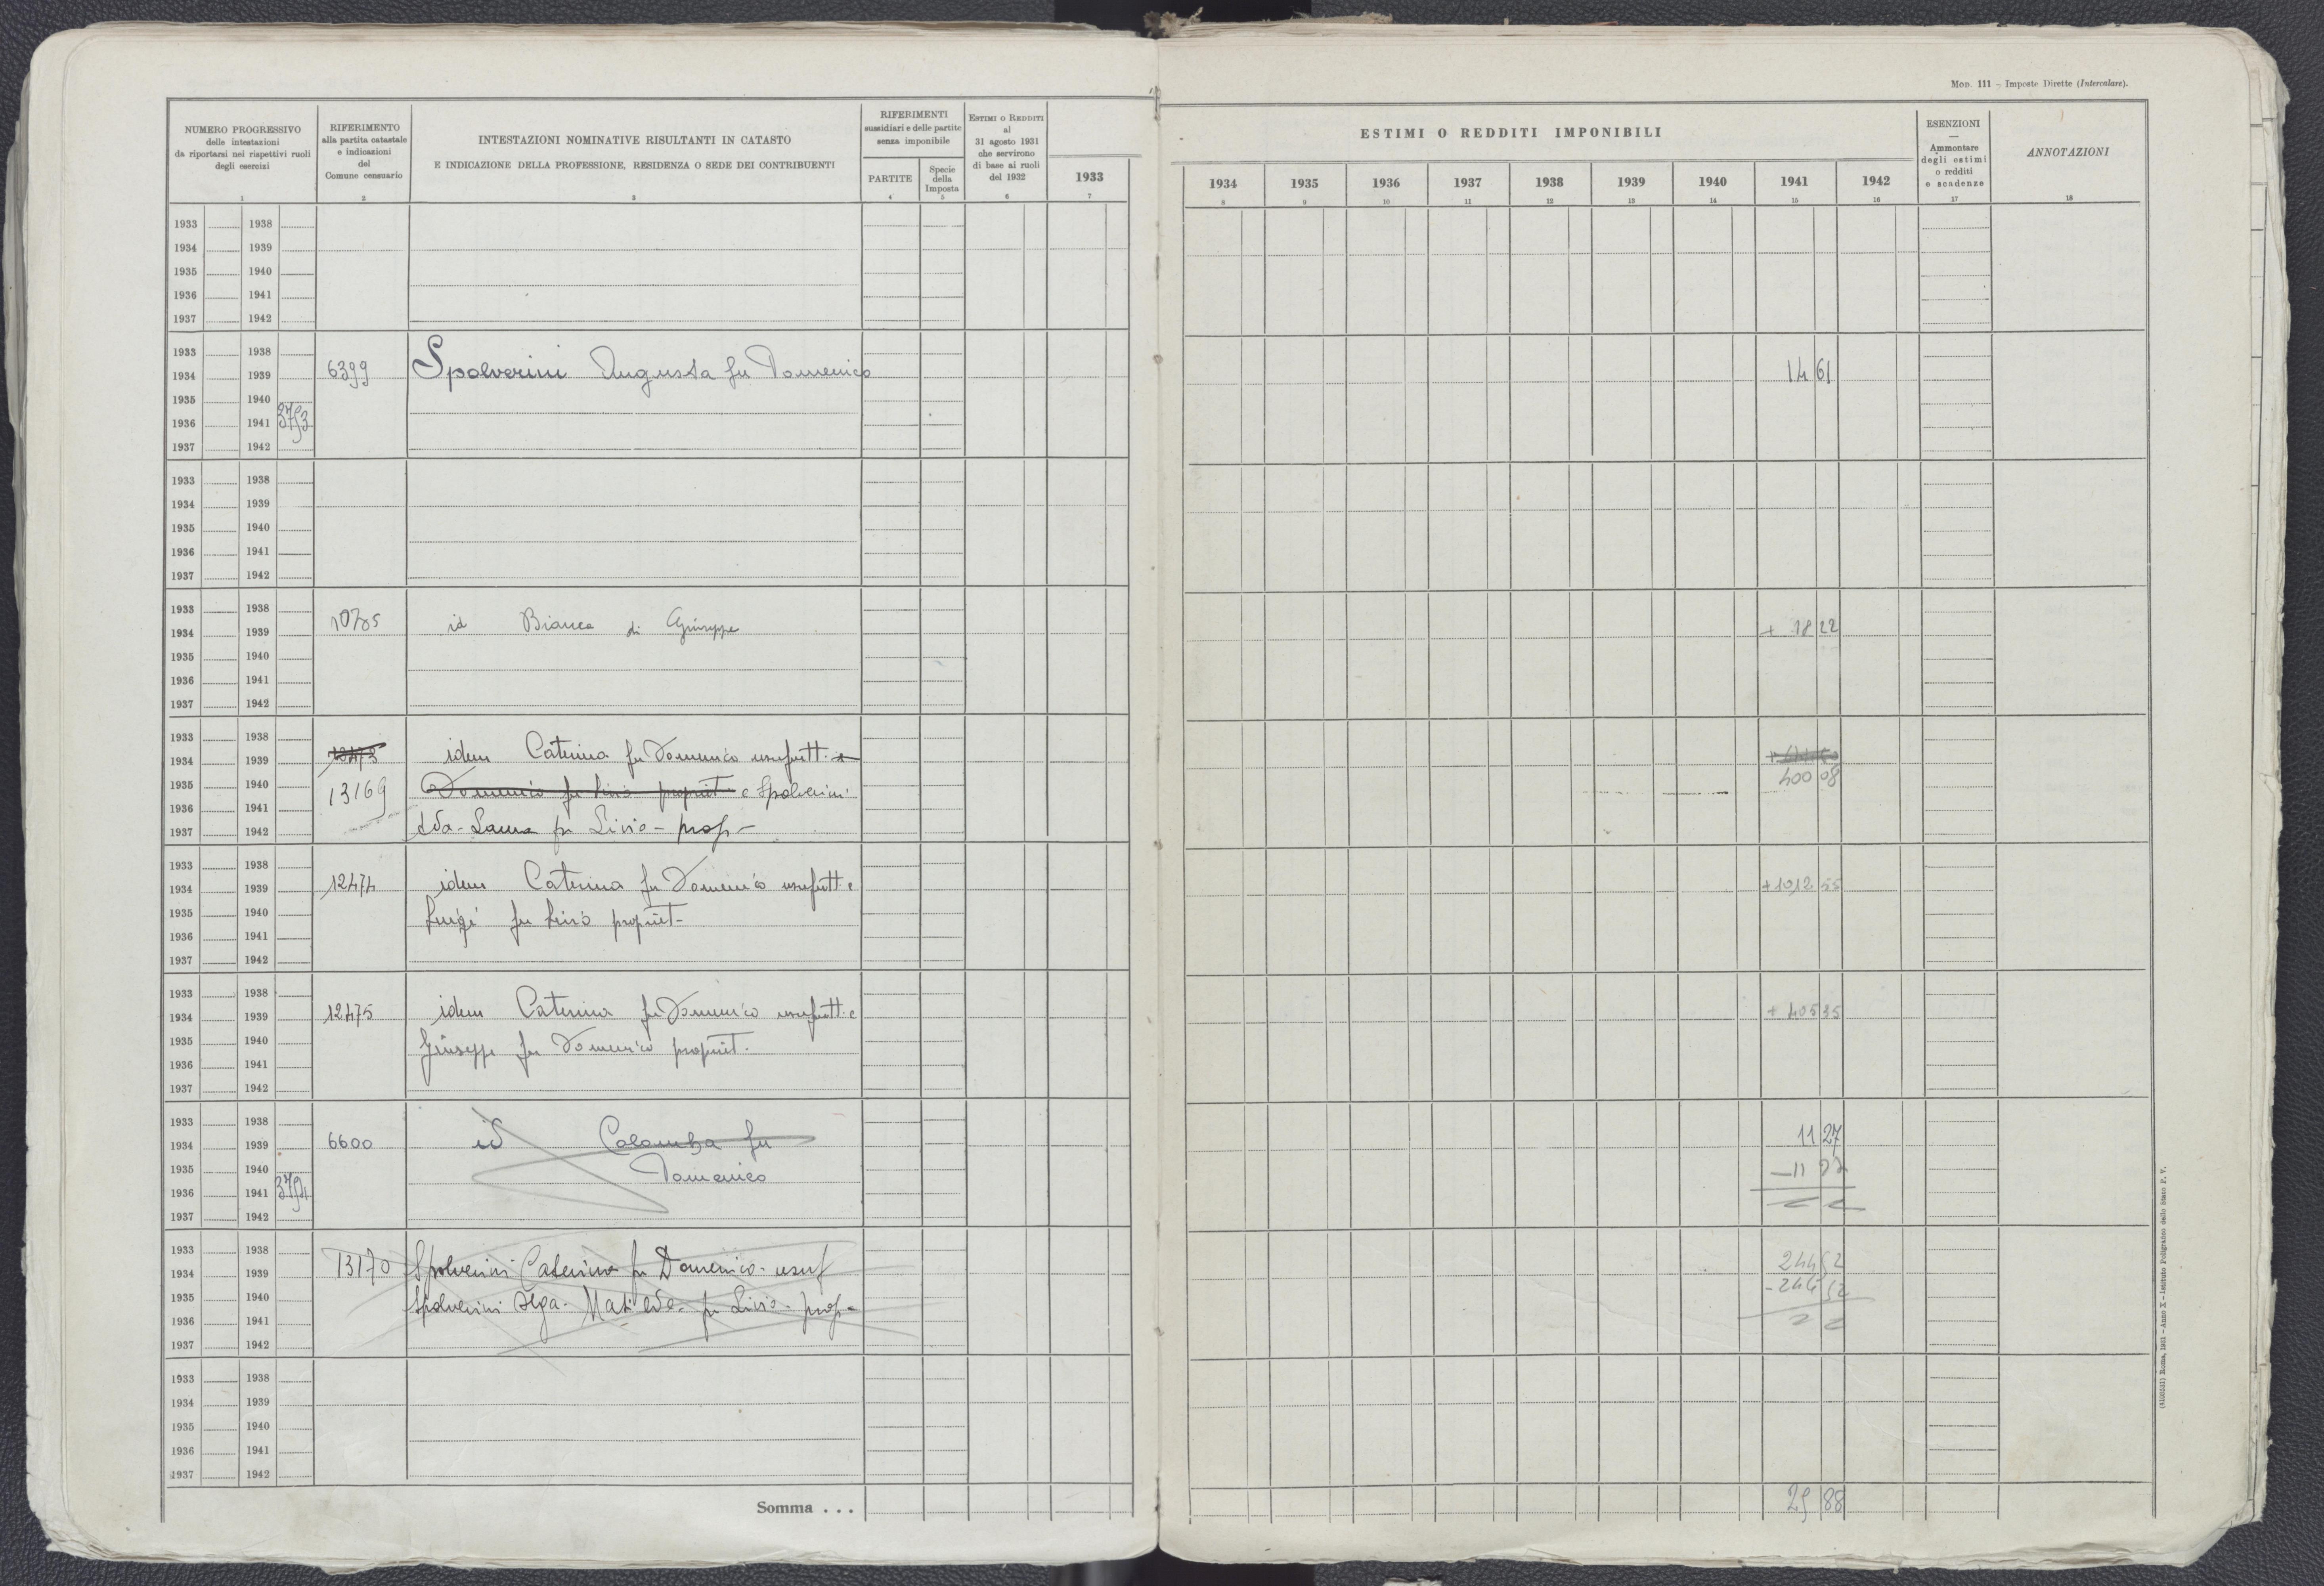 Mod. 111 – Imposte Dirette (Intercalare).
NUMERO PROGRESSIVO
delle intestazioni
da riportarsi nei rispettivi ruoli
degli esercizi
1
RIFERIMENTO
alla partita catastale
e indicazioni
del
Comune censuario
2
INTESTAZIONI NOMINATIVE RISULTANTI IN CATASTO
E INDICAZIONE DELLA PROFESSIONE, RESIDENZA O SEDE DEI CONTRIBUENTI
3
RIFERIMENTI
sussidiari e delle partite
senza imponibile
PARTITE
4
Specie
della
Imposta
5
ESTIMI O REDDITI
al
31 agosto 1931
che servirono
di base ai ruoli
del 1932
6
ESTIMI O REDDITI IMPONIBILI
1933 1934 1935 1936 1937 1938 1939 1940 1941 1942
7 8 9 10 11 12 13 14 15 16
ESENZIONI
—
Ammontare
degli estimi
o redditi
e scadenze
17
ANNOTAZIONI
18
1933 1938
1934 1939
1935 1940
1936 1941
1937 1942
1933 1938
1934 1939 6399 Spolverini Augusta fu Domenico 14 61
1935 1940
1936 1941 3793
1937 1942
1933 1938
1934 1939
1935 1940
1936 1941
1937 1942
1933 1938
1934 1939 10785 id Bianca di Giuseppe + 18 22
1935 1940
1936 1941
1937 1942
1933 1938
1934 1939 12473 idem Caterina fu Domenico usufrutt. e
1935 1940 13169 Domenico fu Livio propriet e Spolverini 400 08
1936 1941
1937 1942 Ida - Laura fu Livio - prop -
1933 1938
1934 1939 12474 idem Caterina fu Domenico usufrutt. e + 1012 55
1935 1940 Luigi fu Livio propriet -
1936 1941
1937 1942
1933 1938
1934 1939 12475 idem Caterina fu Domenico usufrutt. e + 405 35
1935 1940 Giuseppe fu Domenico propriet.
1936 1941
1937 1942
1933 1938
1934 1939 6600 id Colomba fu 11 27
1935 1940 Domenico – 11 27
1936 1941 3794
1937 1942
1933 1938
1934 1939 13170 Spolverini Caterina fu Domenico - usuf 244 52
1935 1940 Spolverini Olga - Matilda - fu Livio - prop - - 244 52
1936 1941
1937 1942
1933 1938
1934 1939
1935 1940
1936 1941
1937 1942
Somma . . . 25 88
(8100337) Roma, 1931 – Anno X – Istituto Poligrafico dello Stato P. V.